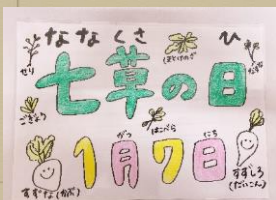 ななくさ ひ
せり ほとけのざ なずな
七草の日
ごぎょう はこべら
がつ にち
1月7日
すずな(かぶ) すずしろ(だいこん)